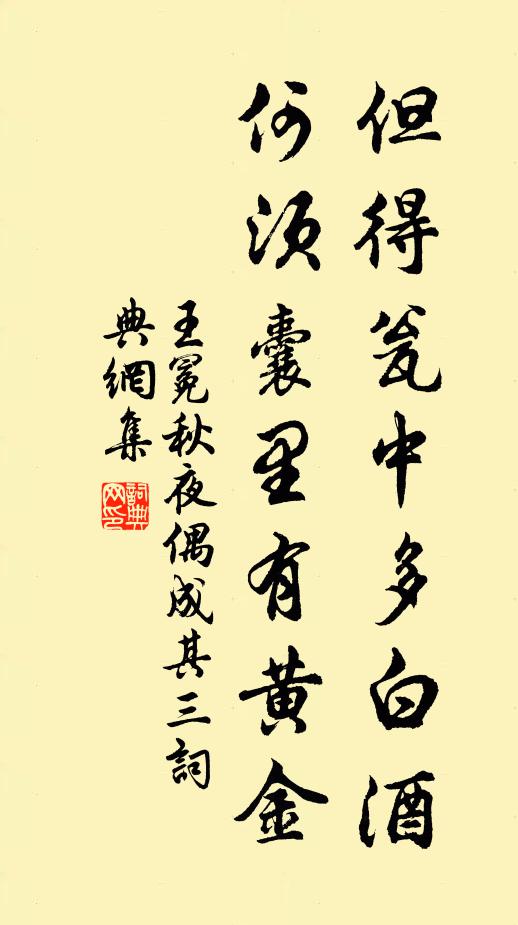 但得瓮中多白酒
何须囊里有黄金
王冕秋夜偶成其三詞
典網集
詞典网印